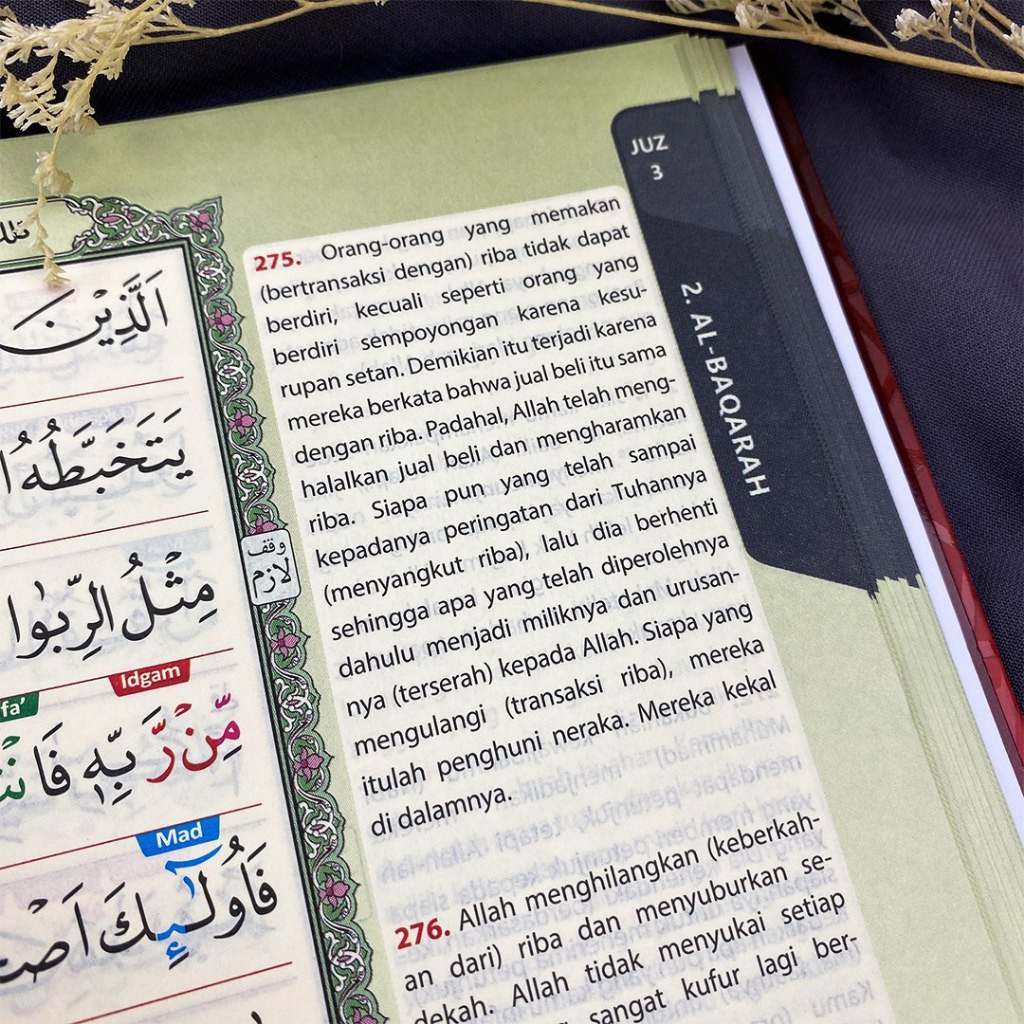 JUZ
3
2. AL-BAQARAH
275. Orang-orang yang memakan
(bertransaksi dengan) riba tidak dapat
berdiri, kecuali seperti orang yang
berdiri sempoyongan karena kesu-
rupan setan. Demikian itu terjadi karena
mereka berkata bahwa jual beli itu sama
dengan riba. Padahal, Allah telah meng-
halalkan jual beli dan mengharamkan
riba. Siapa pun yang telah sampai
kepadanya peringatan dari Tuhannya
(menyangkut riba), lalu dia berhenti
sehingga apa yang telah diperolehnya
dahulu menjadi miliknya dan urusan-
nya (terserah) kepada Allah. Siapa yang
mengulangi (transaksi riba), mereka
itulah penghuni neraka. Mereka kekal
di dalamnya.
276. Allah menghilangkan (keberkah-
an dari) riba dan menyuburkan se-
dekah. Allah tidak menyukai setiap
sangat kufur lagi ber-
اَلَّذِيْنَ
يَتَخَبَّطُهُ
وقف
لازم
مِثْلُ الرِّبٰوا
Idgam
fa’
مِّنْ رَّبِّهٖ
Mad
فَاُولٰۤىِٕكَ